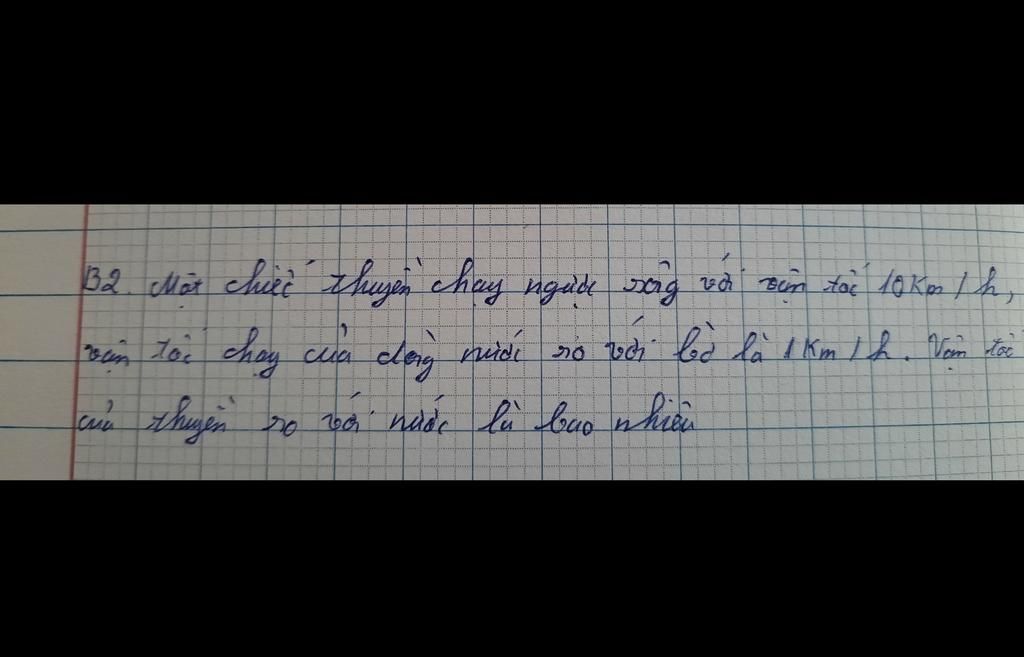 B2. Một chiếc thuyền chạy ngược sông với vận tốc 10Km/h,
vận tốc chạy của dòng nước so với bờ là 1Km/h. Vận tốc
của thuyền so với nước là bao nhiêu